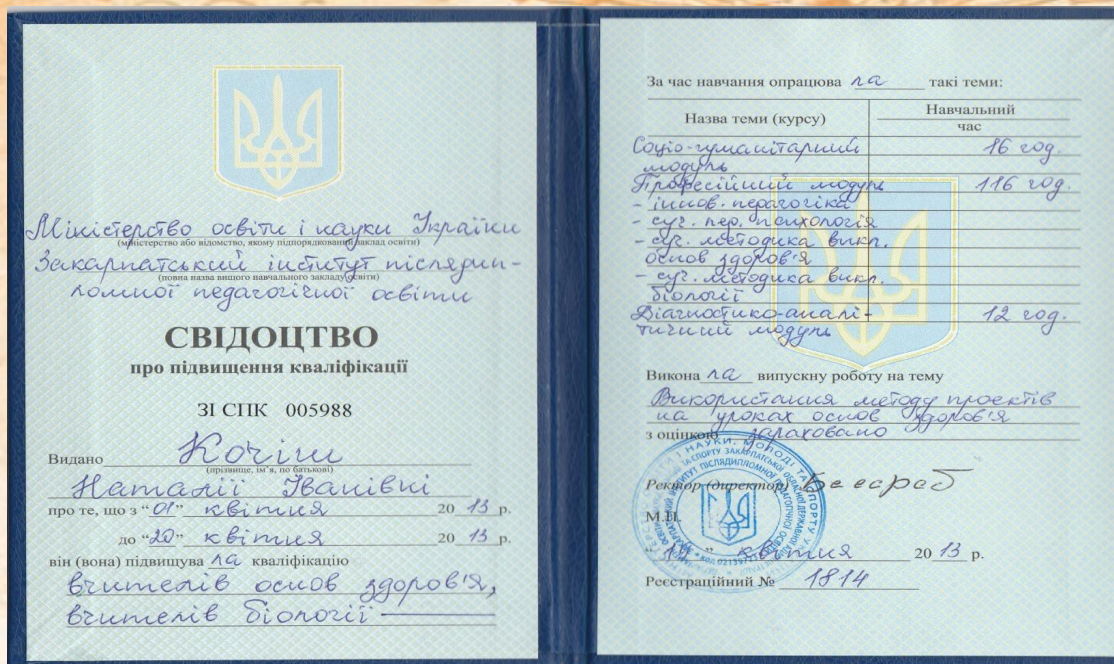 Міністерство освіти і науки України
(міністерство або відомство, якому підпорядкований заклад освіти)
Закарпатський інститут післядип-
(повна назва вищого навчального закладу освіти)
ломної педагогічної освіти
СВІДОЦТВО
про підвищення кваліфікації
ЗІ СПК 005988
Видано Кочіш
(прізвище, ім’я, по батькові)
Наталії Іванівні
про те, що з “01” квітня 20 13 р.
до “20” квітня 20 13 р.
він (вона) підвищува ла кваліфікацію
вчителів основ здоров'я,
вчителів біології
За час навчання опрацюва ла такі теми:
Назва теми (курсу) Навчальний
час
Соціо-гуманітарний 16 год.
модуль
Професійний модуль 116 год.
- іннов. педагогіка
- суч. пед. психологія
- суч. методика викл.
основ здоров'я
- суч. методика викл.
біології
Діагностико-аналі- 12 год.
тичний модуль
Викона ла випускну роботу на тему
Використання методу проектів
на уроках основ здоров'я
з оцінкою зараховано
Ректор (директор)
М.П.
квітня 20 13 р.
Реєстраційний № 1814